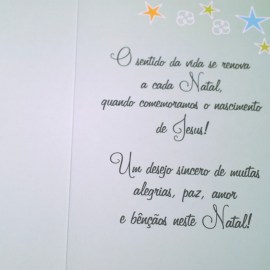 O sentido da vida se renova
a cada Natal,
quando comemoramos o nascimento
de Jesus!
Um desejo sincero de muitas
alegrias, paz, amor
e bênçãos neste Natal!